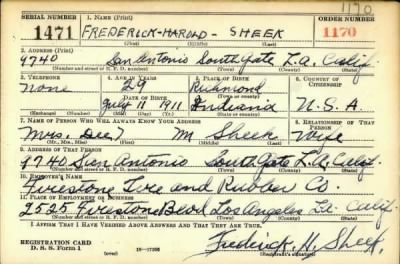 1170
SERIAL NUMBER 1. NAME (Print) ORDER NUMBER
1471 FREDERICK - HAROLD - SHEEK 1170
(First) (Middle) (Last)
2. ADDRESS (Print)
9740 San Antonio South Gate L.A. Calif
(Number and street or R. F. D. number) (Town) (County) (State)
3. TELEPHONE 4. AGE IN YEARS 5. PLACE OF BIRTH 6. COUNTRY OF CITIZENSHIP
None 29 Richmond
DATE OF BIRTH (Town or county)
July 11 1911 Indiana U.S.A
(Exchange) (Number) (Mo.) (Day) (Yr.) (State or country)
7. NAME OF PERSON WHO WILL ALWAYS KNOW YOUR ADDRESS 8. RELATIONSHIP OF THAT PERSON
Mrs. M Sheek Wife
(Mr., Mrs., Miss) (First) (Middle) (Last)
9. ADDRESS OF THAT PERSON
9740 San Antonio South Gate L.A. Calif.
(Number and street or R. F. D. number) (Town) (County) (State)
10. EMPLOYER'S NAME
Firestone Tire and Rubber Co.
11. PLACE OF EMPLOYMENT OR BUSINESS
2525 Firestone Blvd Los Angeles L.A. Calif.
(Number and street or R. F. D. number) (Town) (County) (State)
I AFFIRM THAT I HAVE VERIFIED ABOVE ANSWERS AND THAT THEY ARE TRUE.
REGISTRATION CARD
D. S. S. Form 1 (over) Frederick H. Sheek
(Registrant's signature)